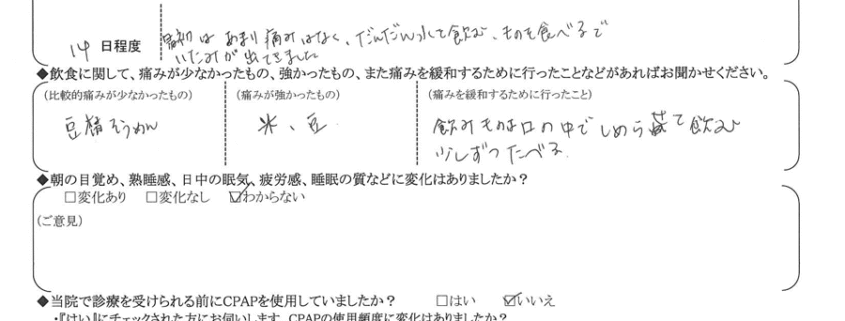 14 日程度
最初は あまり痛みはなく、だんだん水を飲む、ものを食べるで
いたみが出てきました
◆飲食に関して、痛みが少なかったもの、強かったもの、また痛みを緩和するために行ったことなどがあればお聞かせください。
(比較的痛みが少なかったもの) (痛みが強かったもの) (痛みを緩和するために行ったこと)
豆腐そうめん 米、豆 飲みものは口の中でしめらせて飲む
少しずつたべる
◆朝の目覚め、熟睡感、日中の眠気、疲労感、睡眠の質などに変化はありましたか？
□変化あり □変化なし ☑わからない
(ご意見)
◆当院で診療を受けられる前にCPAPを使用していましたか？ □はい ☑いいえ
・『はい』にチェックされた方にお伺いします。CPAPの使用頻度に変化はありましたか？